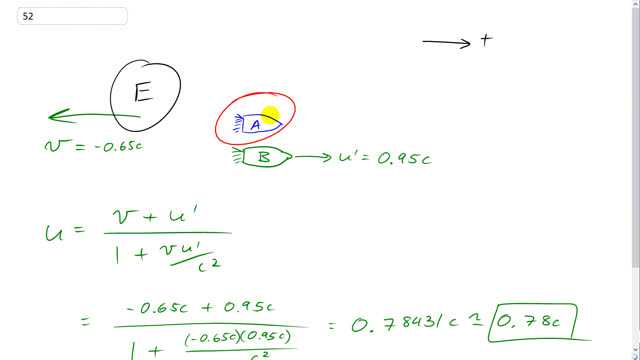 52
→ +
E
A
v = -0.65c
B → u' = 0.95c
u = (v + u') / (1 + vu'/c²)
= (-0.65c + 0.95c) / (1 + (-0.65c)(0.95c)/c²) = 0.78431c ≃ 0.78c